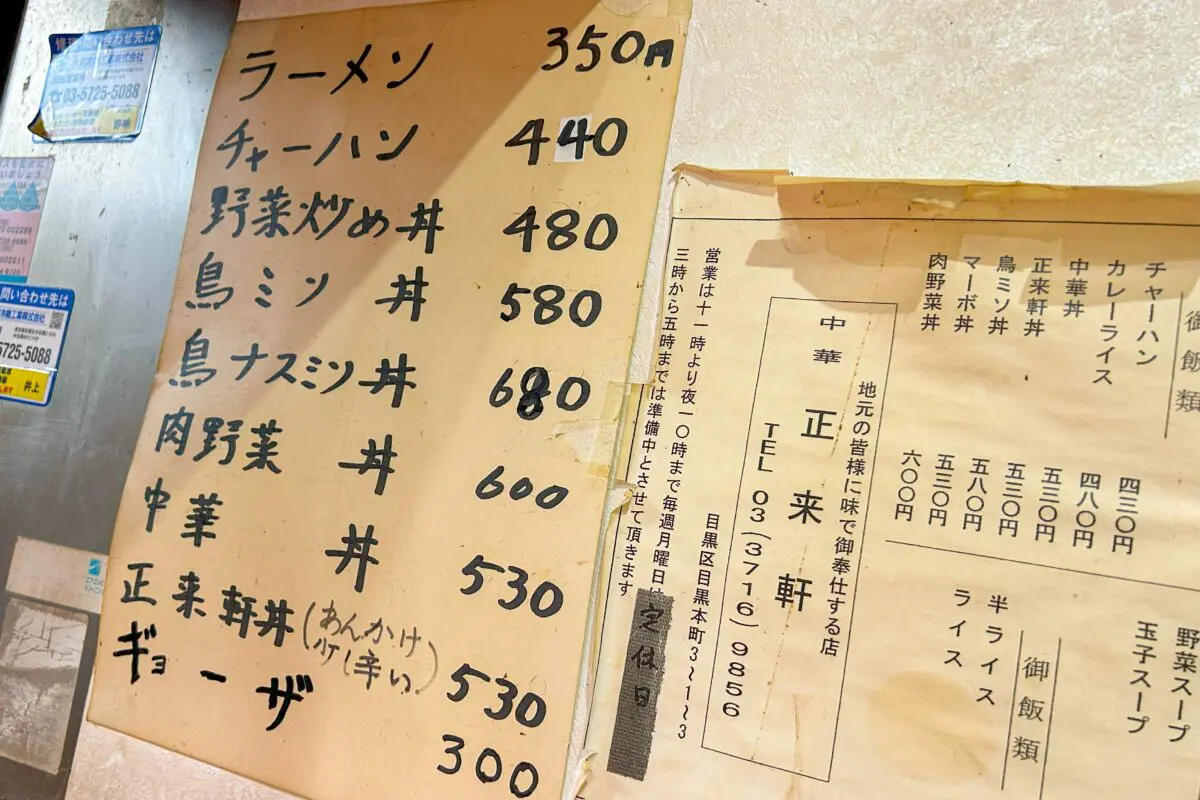 ラーメン 350円
チャーハン 440
野菜炒め丼 480
鳥ミソ丼 580
鳥ナスミソ丼 680
肉野菜丼 600
中華丼 530
正来軒丼(あんかけ少し辛い) 530
ギョーザ 300
御飯類
チャーハン 四三〇円
カレーライス 四八〇円
中華丼 五三〇円
正来軒丼 五三〇円
鳥ミソ丼 五八〇円
マーボ丼 五三〇円
肉野菜丼 六〇〇円
野菜スープ
玉子スープ
御飯類
半ライス
ライス
地元の皆様に味で御奉仕する店
中華 正来軒
TEL 03(3716)9856
目黒区目黒本町3〜1〜3
営業は十一時より夜一〇時まで毎週月曜日は定休日
三時から五時までは準備中とさせて頂きます
修理・問い合わせ先は
工業株式会社
☎03-5725-5088
問い合わせ先は
工業株式会社
5725-5088
井上